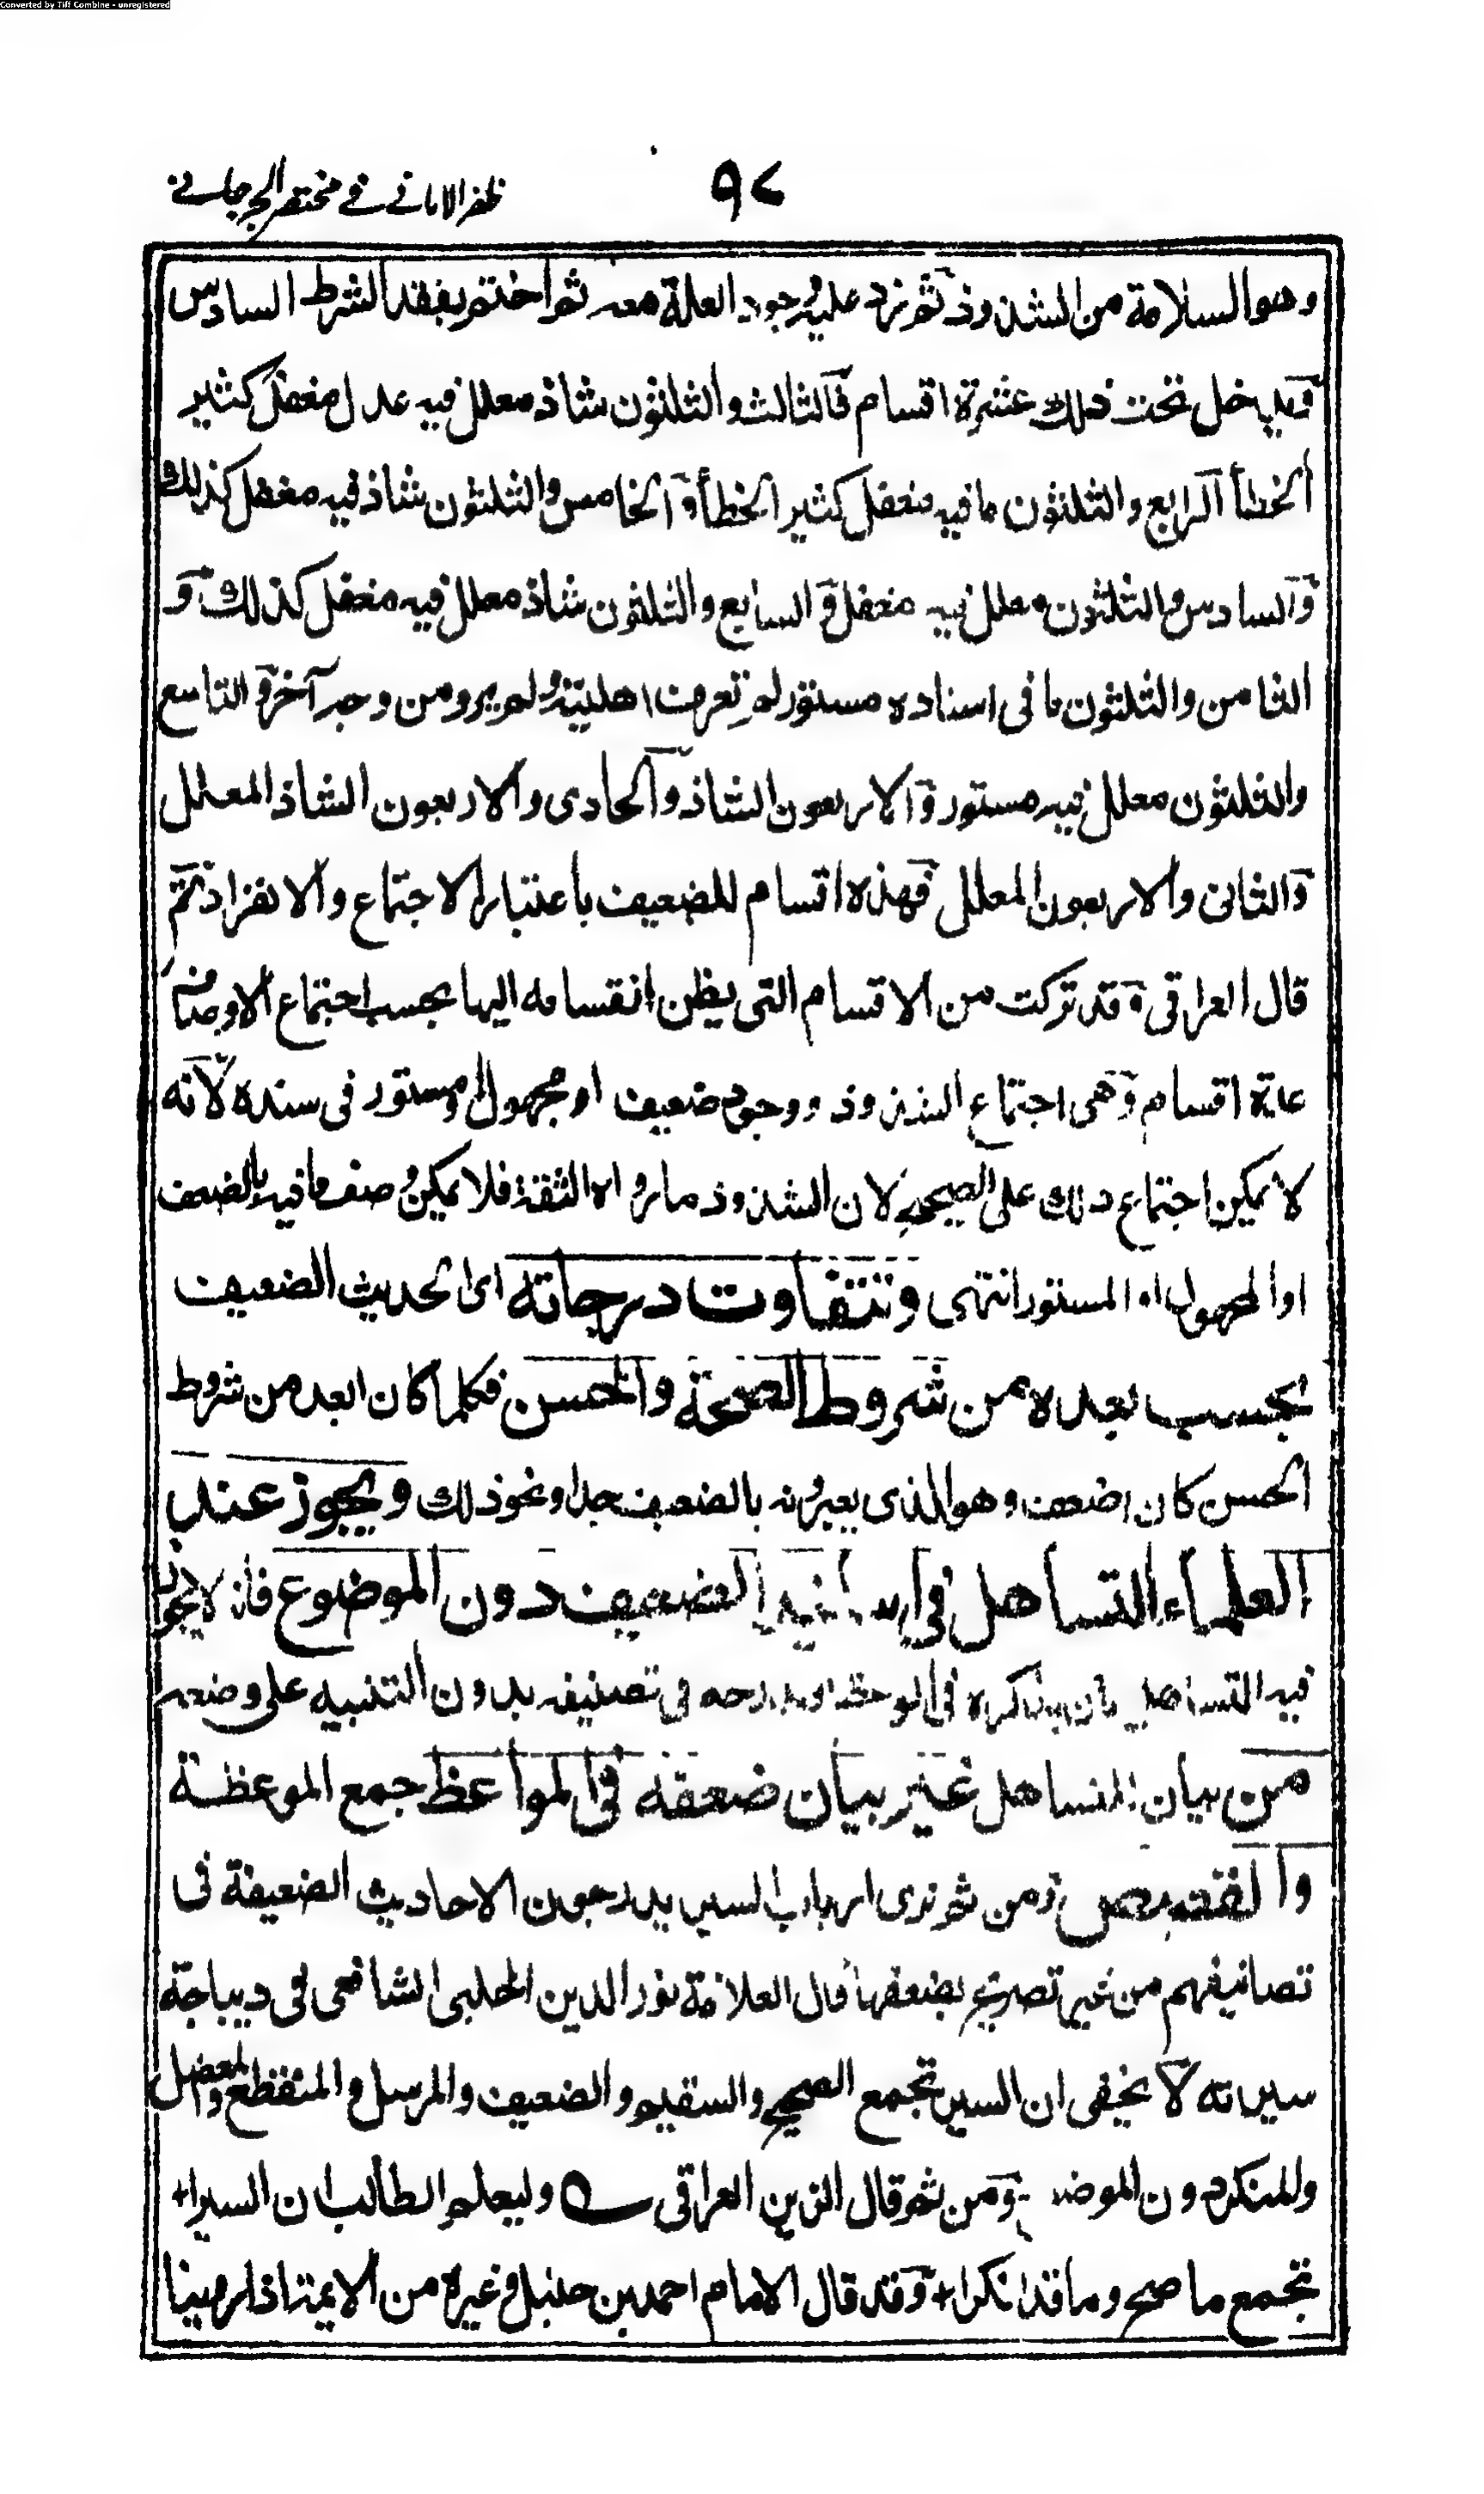 Converted by Tiff Combine - unregistered
٩٨
ظفر الامانى فى مختصر الجرجانى
وهو السلامة من الشذوذ ثم نزد عليه وجود العلة معه ثم اختم بفقد الشرط السادس
فيدخل تحت ذلك عشرة اقسام فالثالث والثلثون شاذ معلل فيه عدل مغفل كثير
الخطأ الرابع والثلثون ما فيه مغفل كثير الخطأ والخامس والثلثون شاذ فيه مغفل كذلك
والسادس والثلثون معلل فيه مغفل والسابع والثلثون شاذ معلل فيه مغفل كذلك و
الثامن والثلثون ما فى اسناده مستور لم تعرف اهليته ولم يرو من وجه آخر والتاسع
والثلثون معلل فيه مستور والاربعون الشاذ والحادى والاربعون الشاذ المعلل
والثانى والاربعون المعلل فهذه اقسام للضعيف باعتبار الاجتماع والانفراد ثم
قال العراقى وقد تركت من الاقسام التى يظن انقسامه اليها بحسب اجتماع الاوصاف
عدة اقسام وهى اجتماع الشذوذ ووجود ضعيف او مجهول او مستور فى سنده لانه
لا يمكن اجتماع ذلك على الصحيح لان الشذوذ ما رواه الثقة فلا يمكن وصف ما فيه بالضعف
او المجهول او المستور انتهى وتتفاوت درجاته اى الحديث الضعيف
بحسب بعده من شروط الصحة والحسن فكلما كان ابعد من شروط
الحسن كان اضعف وهو الذى يعبرونه بالضعيف جدا ونحو ذلك ويجوز عند
العلماء التساهل فى اسانيد الضعيف دون الموضوع فانه لا يجوز
فيه التساهل بان يذكره فى الموعظة او يدرجه فى تصنيفه بدون التنبيه على وضعه
من بيان المتساهل غير بيان ضعفه فى المواعظ جمع الموعظة
والقصص ومن ثم ترى ارباب السير يدرجون الاحاديث الضعيفة فى
تصانيفهم من غير تصريح بضعفها قال العلامة نور الدين الحلبى الشافعى فى ديباجة
سيرته لا يخفى ان السير تجمع الصحيح والسقيم والضعيف والمرسل والمنقطع والمعضل
والمنكر دون الموضوع ومن ثم قال الزين العراقى ؎ وليعلم الطالب ان السيرا+
تجمع ما صح وما قد انكرا+ وقد قال الامام احمد بن حنبل وغيره من الايمة اذا روينا